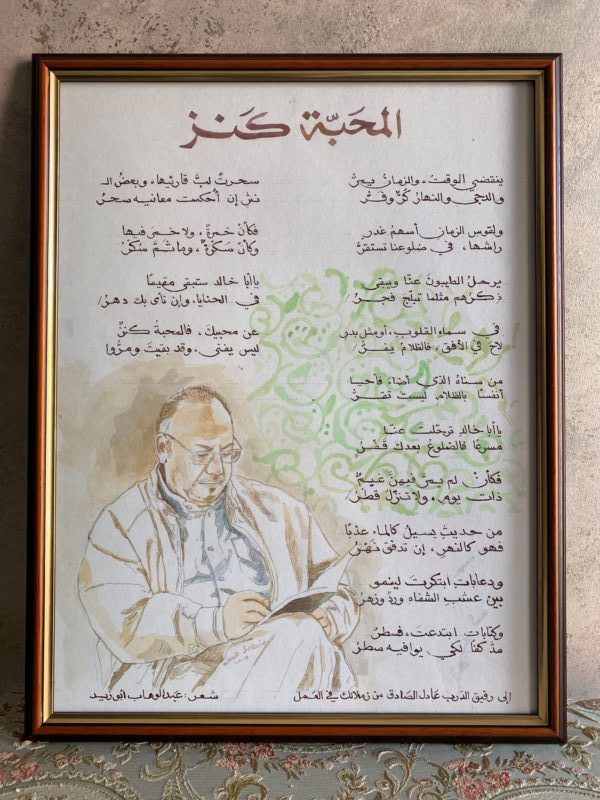 المحَبّة كَنز
ينقضي الوقتُ، والزمانُ يمرُّ
والدجى والنهارُ كرٌّ وفرُّ
ولقوس الزمان أسهمُ غدر
راشها، في ضلوعنا تستقرُّ
يرحلُ الطيبونَ عنّا ويبقى
ذِكرُهم مثلما تبلّج فجرُ
في سماء القلوب، أو مثل بدرٍ
لاحَ في الأفق، فالظلامُ يفرُّ
من سناهُ الذي أضاءَ فأحيا
أنفسًا بالظلام ليست تقرُّ
يا أبا خالدٍ ترجّلتَ عنا
مسرعًا فالضلوعُ بعدكَ قفرُ
فكأن لم يمرَّ فيهنَ غيمٌ
ذات يومٍ، ولا تنزّل قطرُ
من حديثٍ يسيلُ كالماء عذبًا
فهو كالنهرِ، إن تدفّق نهرُ
ودعاباتٍ ابتكرتَ لينمو
بين عشبِ الشفاهِ وردٌ وزهرُ
وكتاباتٍ ابتدعتَ، فسطرٌ
مذ كفنا لكي يوافيه سطرُ
سحرتْ لبَّ قارئيها، وبعضُ الـ
نثرِ إن أُحكمت معانيه سحرُ
فكأنْ خمرةٌ، ولا خمرَ فيها
وكأنْ سَكرةٌ، وما ثَمَّ سُكرُ
يا أبا خالد ستبقى مقيمًا
في الحنايا، وإن نأى بك دهرُ
عن محبيكَ، فالمحبةُ كنزٌ
ليس يفنى، وقد بقيتَ ومرُّوا
إلى رفيق الدرب عادل الصادق من زملائك في العمل
شعر: عبدالوهاب أبو زيد